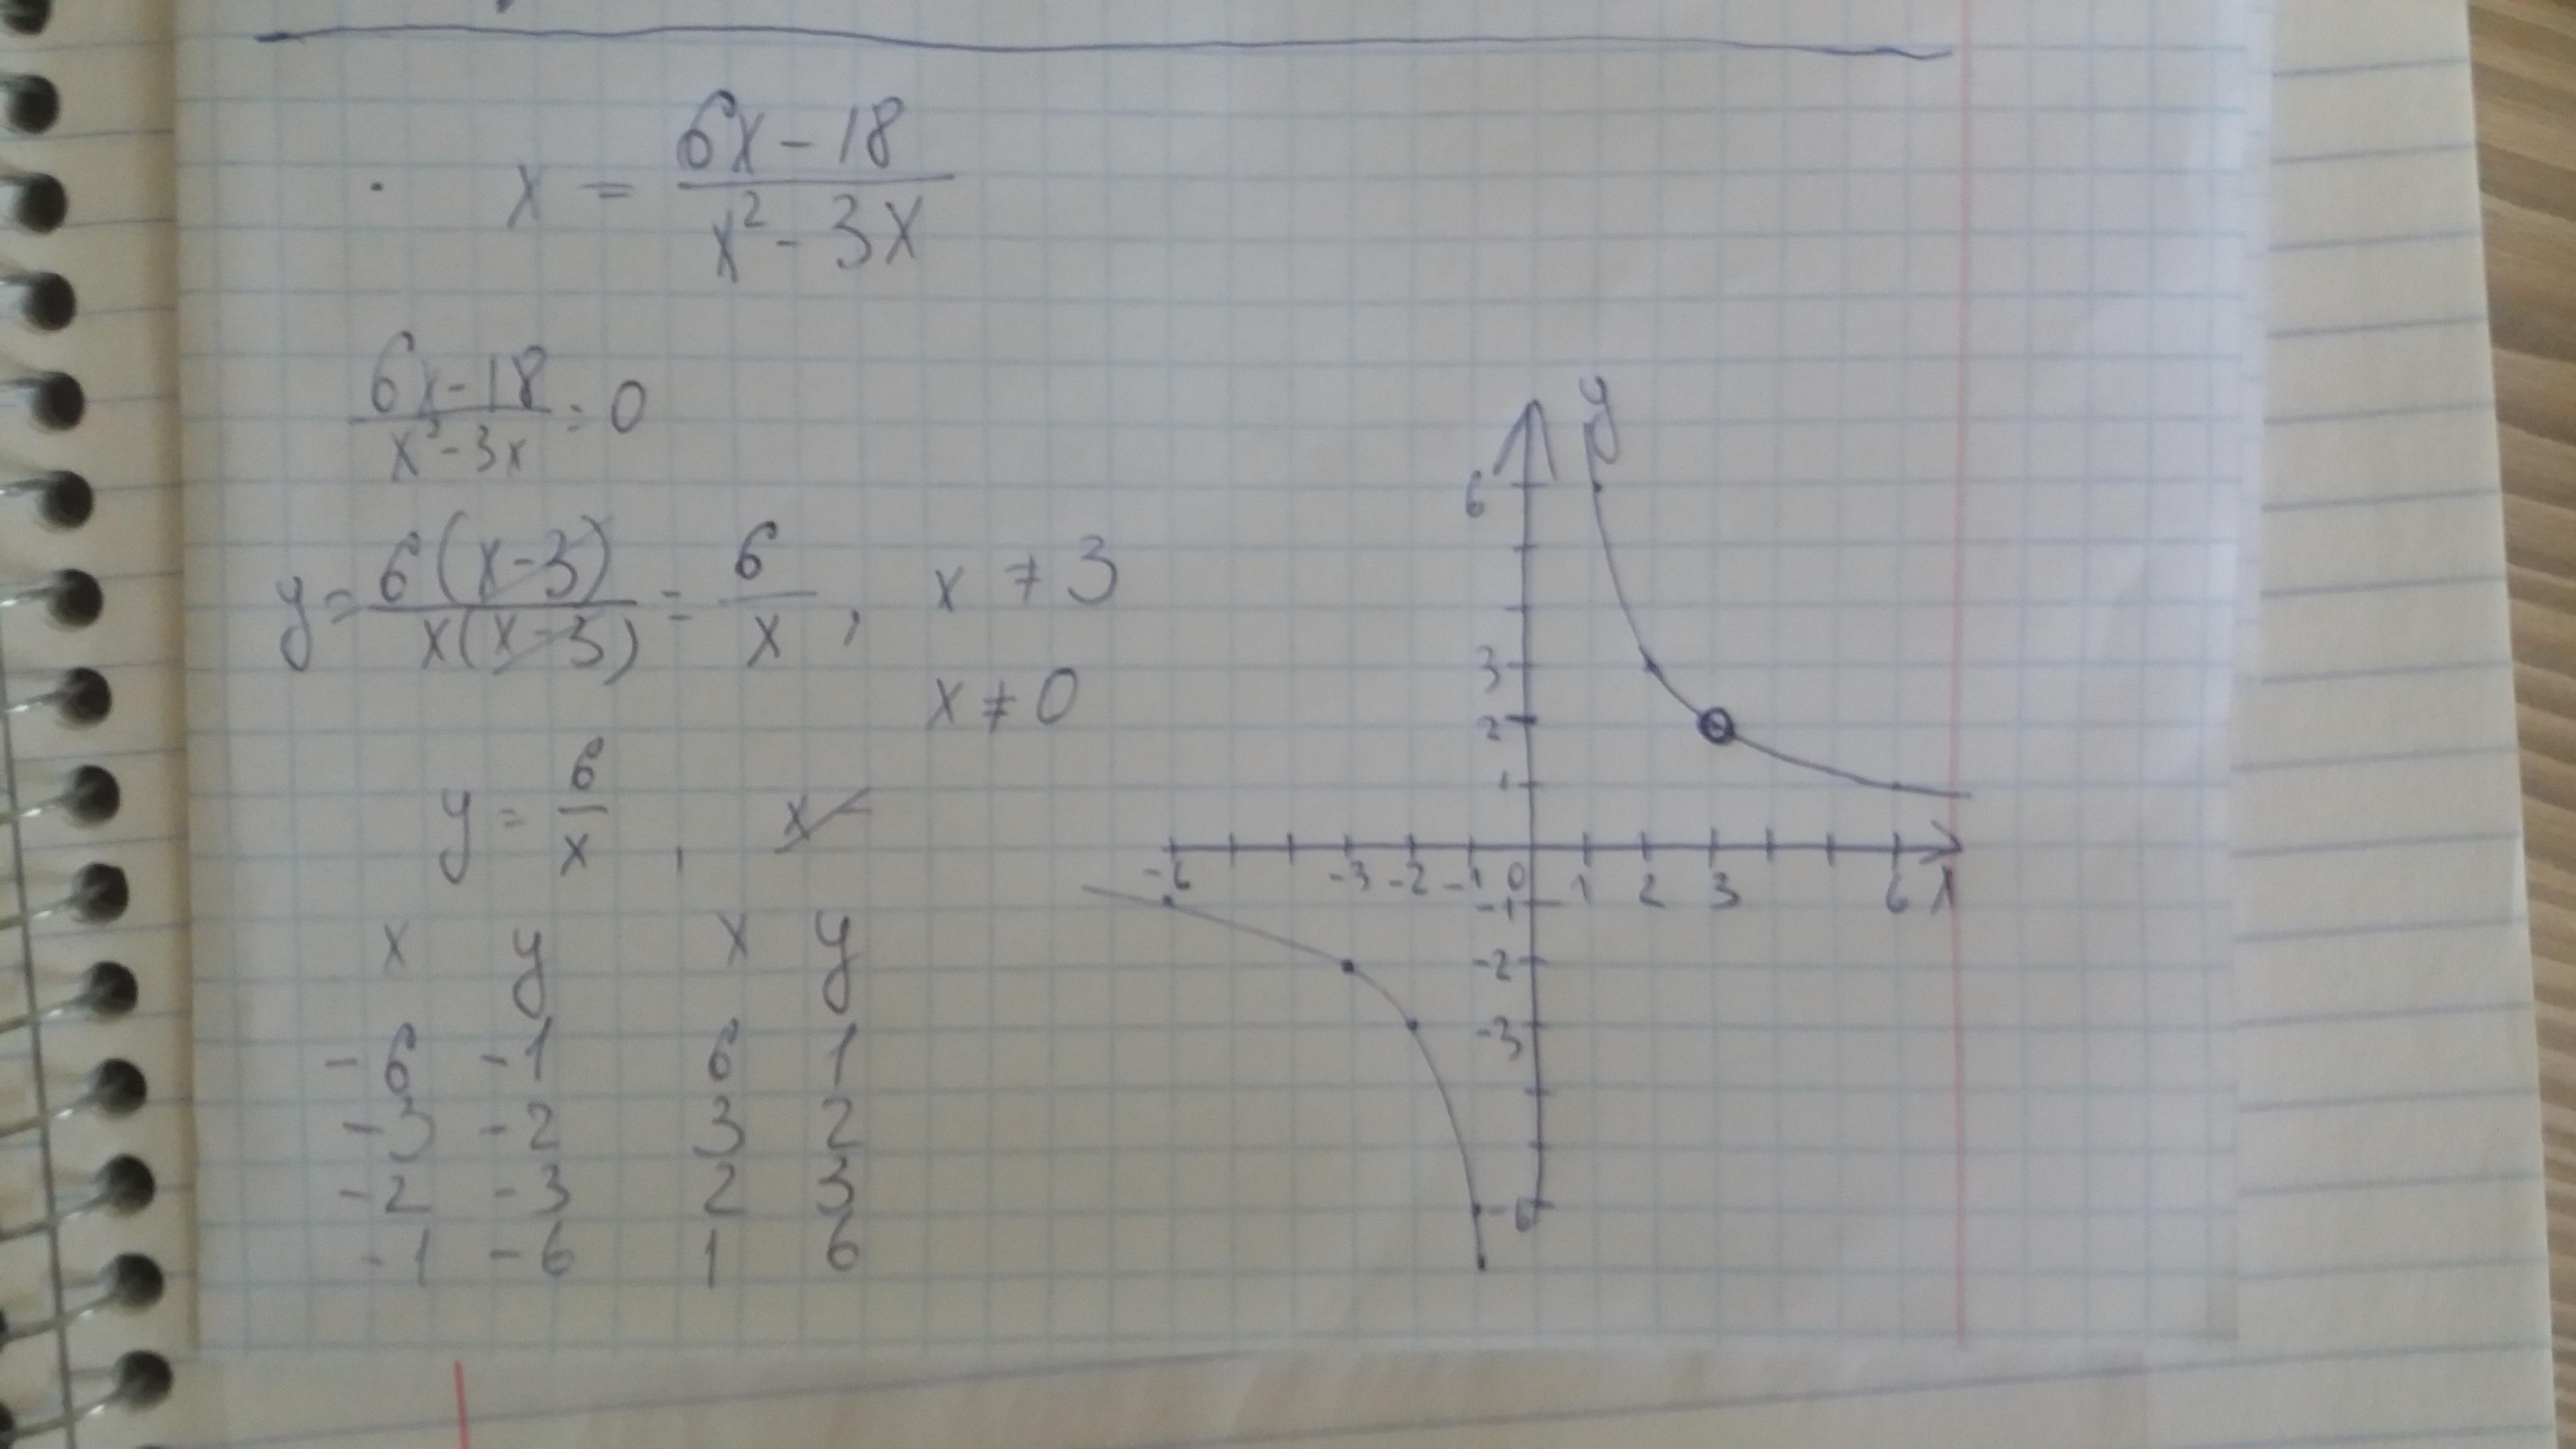 x = (6x - 18)/(x² - 3x)
(6x - 18)/(x² - 3x) = 0
y = 6(x - 3)/(x(x - 3)) = 6/x, x ≠ 3
x ≠ 0
y = 6/x, x
x y x y
-6 -1 6 1
-3 -2 3 2
-2 -3 2 3
-1 -6 1 6
y
6
3
2
1
-6 -3 -2 -1 0 1 2 3 6 x
-1
-2
-3
-6